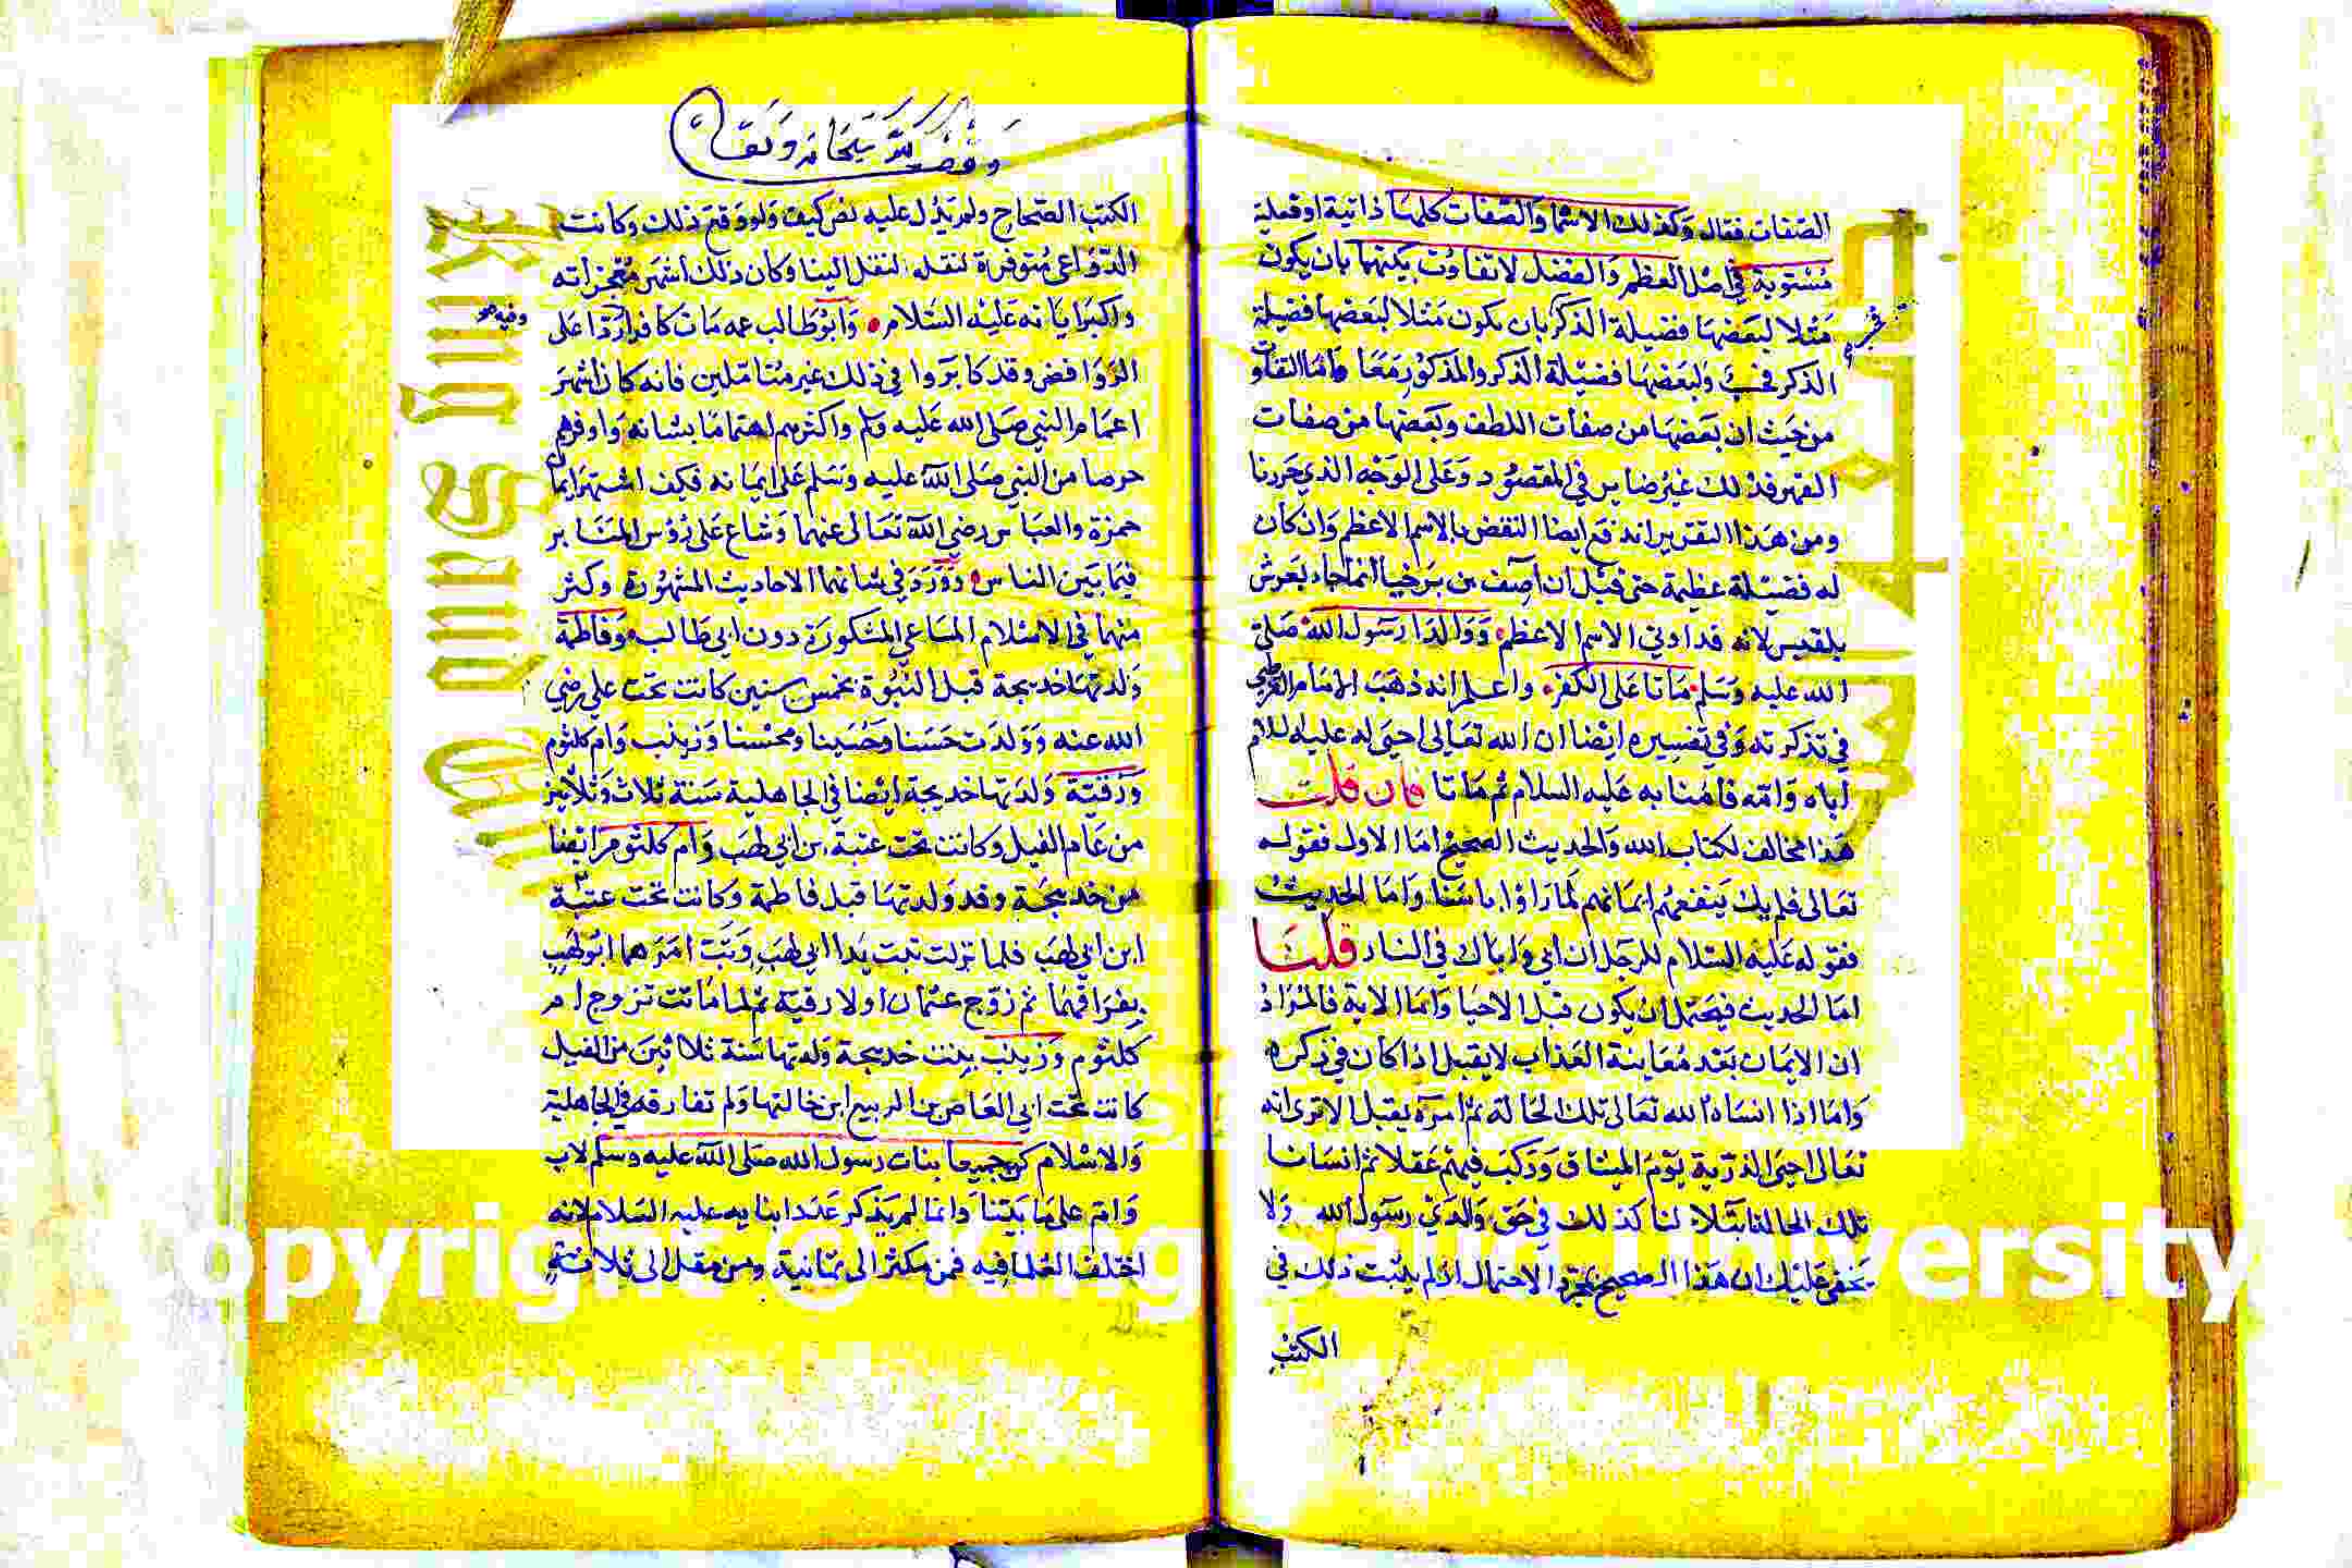 الصفات فقال وكذلك الاسما والصفات كلها ذاتية او فعلية
مستوية في اصل العظم والفضل لا تفاوت بينهما بان يكون
مثلا لبعضها فضيلة الذكر بان يكون مثلا لبعضها فضيلة
الذكر فحسب ولبعضها فضيلة الذكر والمذكور معا واما التفاوت
من حيث ان بعضها من صفات اللطف وبعضها من صفات
القهر فذلك غير ضاير في المقصود وعلى الوجه الذي حررنا
ومن هذا التقرير اندفع ايضا النقض بالاسم الاعظم وان كان
له فضيلة عظيمة حتى قيل ان آصف بن برخيا انما جاء بعرش
بلقيس لانه قد اوتي الاسم الاعظم ووالدا رسول الله صلى
الله عليه وسلم ماتا على الكفر واعلم انه ذهب الامام القرطبي
في تذكرته وفي تفسيره ايضا ان الله تعالى احيى له عليه السلام
اباه وامه فامنا به عليه السلام ثم ماتا فان قلت
هذا مخالف لكتاب الله والحديث الصحيح اما الاول فقوله
تعالى فلم يك ينفعهم ايمانهم لما راوا باسنا واما الحديث
فقوله عليه السلام للرجل ان ابي واباك في النار قلنا
اما الحديث فيحتمل ان يكون قبل الاحيا واما الاية فالمراد
ان الايمان بعد معاينة العذاب لا يقبل اذا كان في ذكره
واما اذا انساه الله تعالى تلك الحالة ثم امره يقبل الا ترى انه
تعالى احيى الذرية يوم الميثاق وركب فيهم عقلا ثم انسانا
تلك الحالة ابتلاء لنا كذلك في حق والدي رسول الله ولا
يخفى عليك ان هذا الصحيح بمجرد الاحتمال اذ لم يثبت ذلك في
الكتب
وقف لله سبحانه وتعالى
الكتب الصحاح ولم يدل عليه نص كيف ولو وقع ذلك وكانت
الدواعي متوفرة لنقله لنقل الينا وكان ذلك اشهر معجزاته
واكبر اياته عليه السلام وابو طالب عمه مات كافرا ردا على
وفيه
الروافض وقد كابروا في ذلك غير متاملين فانه كان اشهر
اعمام النبي صلى الله عليه وسلم واكثرهم اهتماما بشانه واوفرهم
حرصا من النبي صلى الله عليه وسلم على ايمانه فكيف اشتهر ايمان
حمزة والعباس رضي الله تعالى عنهما وشاع على رؤس المنابر
فيما بين الناس وورد في شانهما الاحاديث المشهورة وكثر
منهما في الاسلام المساعي المشكورة دون ابي طالب وفاطمة
ولدتها خديجة قبل النبوة بخمس سنين كانت تحت علي رضي
الله عنه وولدت حسنا وحسينا ومحسنا وزينب وام كلثوم
ورقية ولدتها خديجة ايضا في الجاهلية سنة ثلاث وثلاثين
من عام الفيل وكانت تحت عتبة بن ابي لهب وام كلثوم ايضا
من خديجة وقد ولدتها قبل فاطمة وكانت تحت عتيبة
ابن ابي لهب فلما نزلت تبت يدا ابي لهب وتب امرهما ابو لهب
بفراقهما ثم زوج عثمان اولا رقية ثم لما ماتت تزوج ام
كلثوم وزينب بنت خديجة ولدتها سنة ثلاثين من الفيل
كانت تحت ابي العاص بن الربيع ابن خالتها ولم تفارقه في الجاهلية
والاسلام كن جميعا بنات رسول الله صلى الله عليه وسلم لاب
وام على ما بينا وانما لم يذكر عدد ابنايه عليه السلام لانه
اختلف العلما فيه فمن مكثر الى ثمانية ومن مقل الى ثلاثة
King Saud University
Copyright © King Saud University